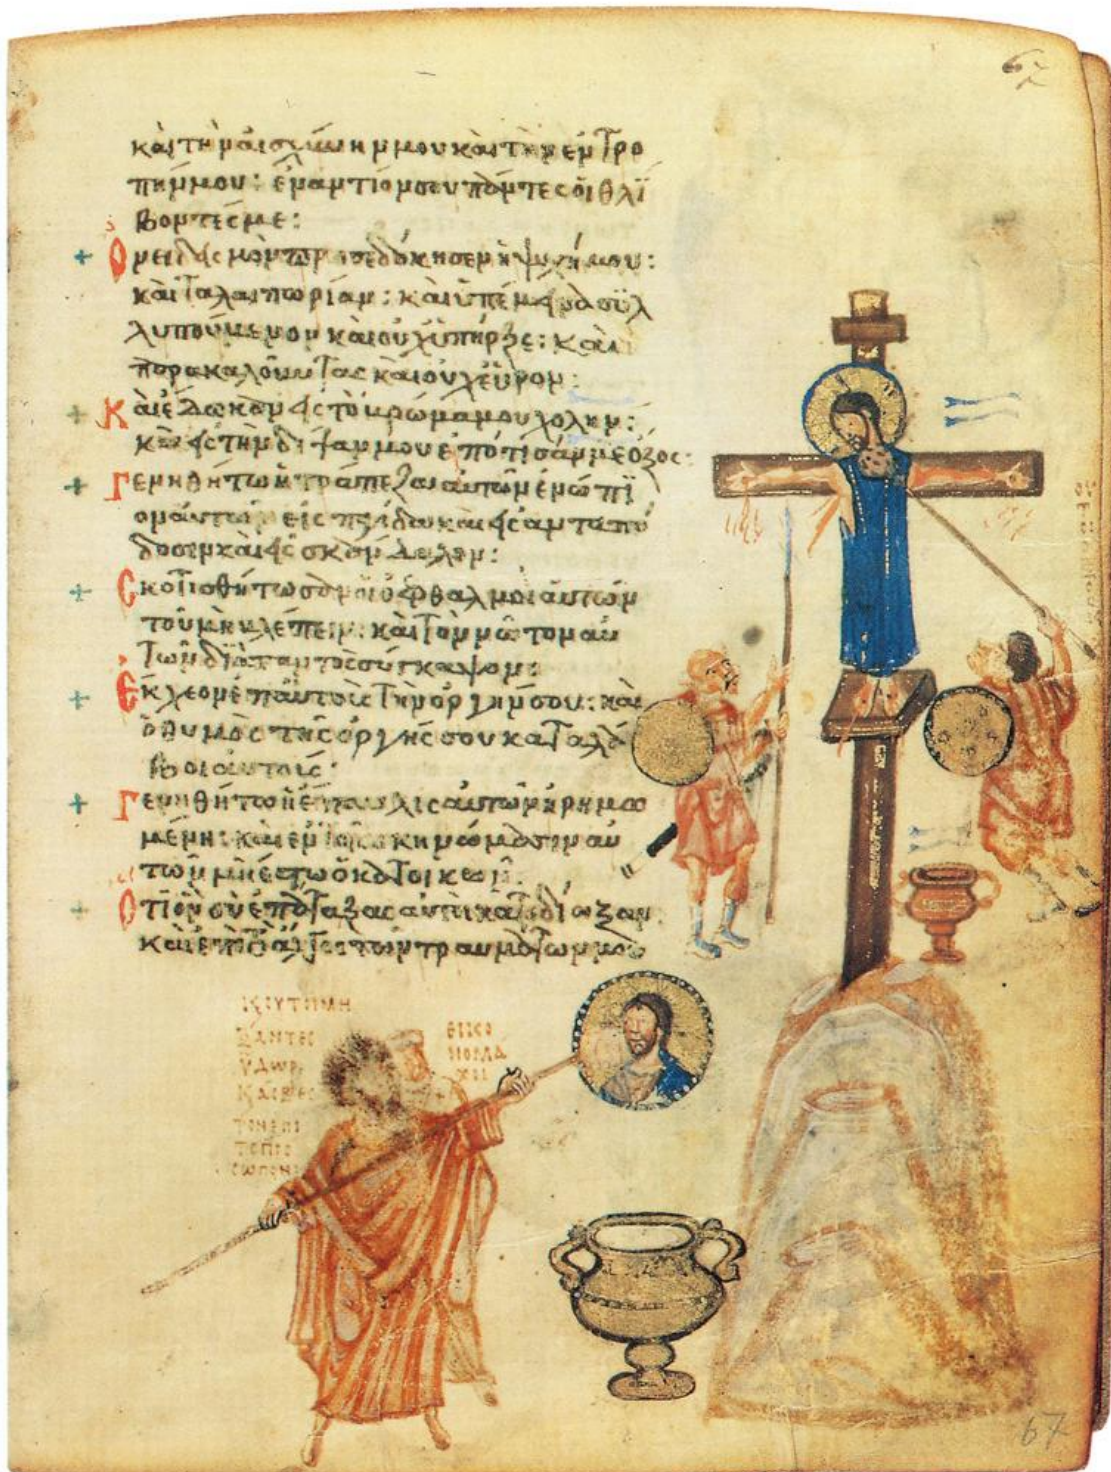 67
καὶ τὴν αἰσχύνην μου καὶ τὴν ἐντρο
πήν μου: ἐναντίον σου πάντες οἱ θλί
βοντές με:
Ονειδισμὸν προσεδόκησεν ἡ ψυχή μου:
καὶ ταλαιπωρίαν: καὶ ὑπέμεινα συλ
λυπούμενον καὶ οὐχ ὑπῆρξε: καὶ
παρακαλοῦντας καὶ οὐχ εὗρον:
Καὶ ἔδωκαν εἰς τὸ βρῶμα μου χολὴν:
καὶ εἰς τὴν δίψαν μου ἐπότισάν με ὄξος:
Γενηθήτω ἡ τράπεζα αὐτῶν ἐνώπι
ον αὐτῶν εἰς παγίδα καὶ εἰς ἀνταπό
δοσιν καὶ εἰς σκάνδαλον:
Σκοτισθήτωσαν οἱ ὀφθαλμοὶ αὐτῶν
τοῦ μὴ βλέπειν: καὶ τὸν νῶτον αὐ
τῶν διὰ παντὸς σύγκαμψον:
Εκχεον ἐπ αὐτοὺς τὴν ὀργήν σου: καὶ
ὁ θυμὸς τῆς ὀργῆς σου καταλά
βοι αὐτούς:
Γενηθήτω ἡ ἔπαυλις αὐτῶν ἠρημω
μένη: καὶ ἐν τοῖς σκηνώμασιν αὐ
τῶν μὴ ἔστω ὁ κατοικῶν:
Οτι ὃν σὺ ἐπάταξας αὐτοὶ κατεδίωξαν:
καὶ ἐπὶ τὸ ἄλγος τῶν τραυμάτων μου
ΞΑΝΤΕС
ΥΔΩΡ
ΤΟ ΠΡΟ
СΩΠΟΝ
ΕΙΚΟ
ΝΟΜΑ
ΧΟΙ
67